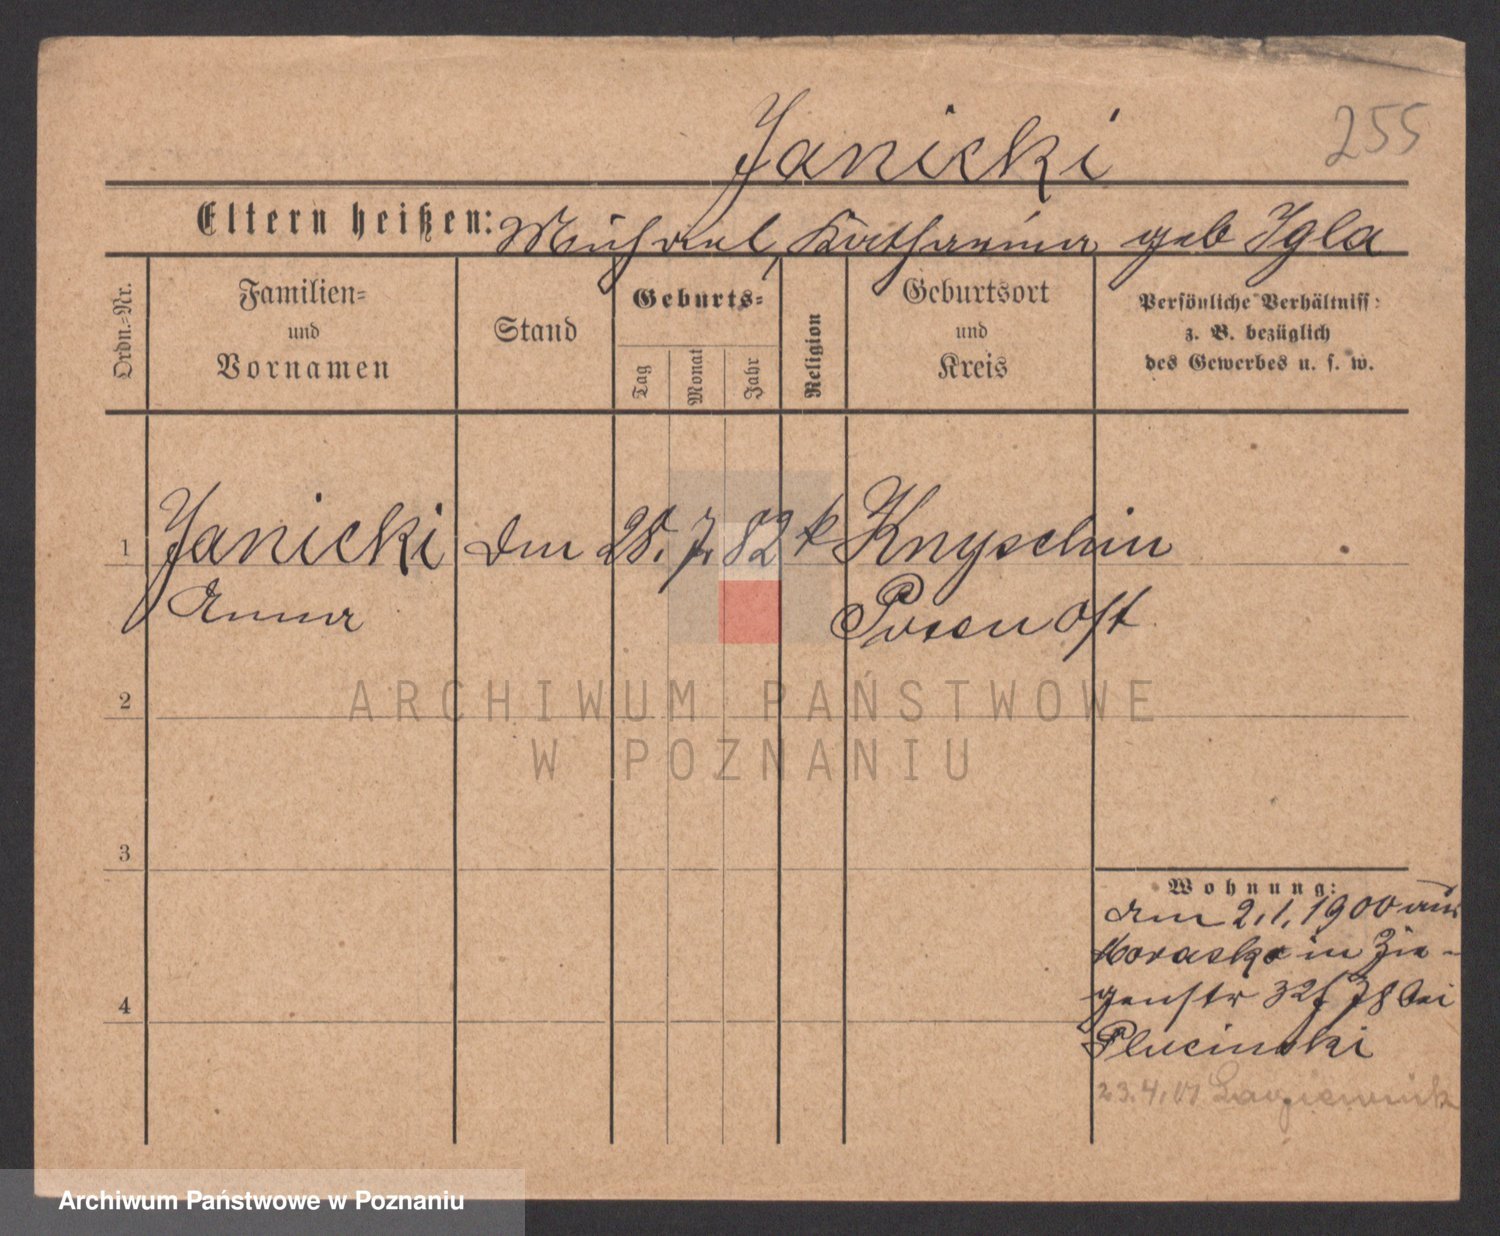 Janicki
255
Eltern heißen: Michael, Katharina geb Igla
Ordn.-Nr.
Familien-
und
Vornamen
Stand
Geburts-
Tag
Monat
Jahr
Religion
Geburtsort
und
Kreis
Persönliche Verhältniss:
z. B. bezüglich
des Gewerbes u. s. w.
1 Janicki 28. 7. 82 k Knyschin
Anna Posen Ost
2
ARCHIWUM PAŃSTWOWE
W POZNANIU
3
Wohnung:
am 2.1.1900 aus
Morasko in Zie-
genstr bei
Plucinski
4
23.4.01
Archiwum Państwowe w Poznaniu